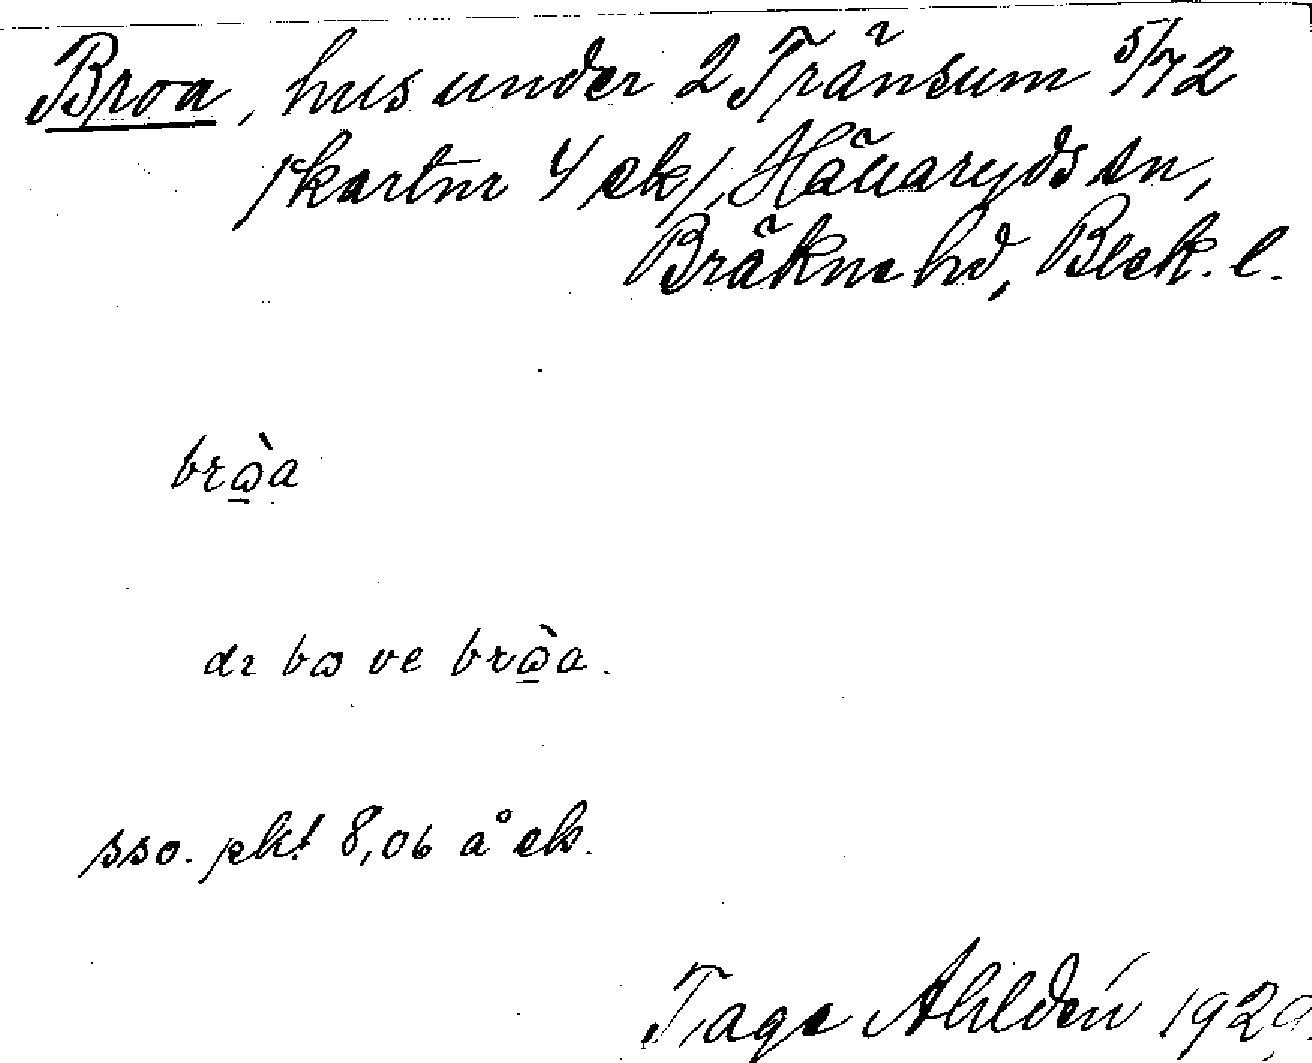 Broa, hus under 2 Tränsum 5/72
/kartnr 4 ek/, Hällaryds sn,
Bräkne hd, Blek. l.
brὼ̱a
dɪ bω ve brὼ̱a.
sso. pkt 8,06 å ek.
Tage Ahldén 1929.